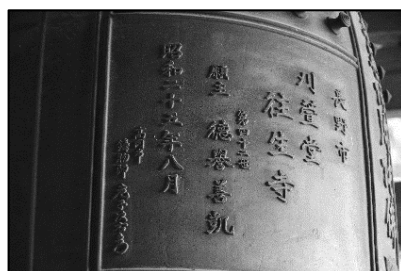 長野市
刈萱堂
往生寺
第四十二世
願主 徳誉善凱
昭和二十五年八月